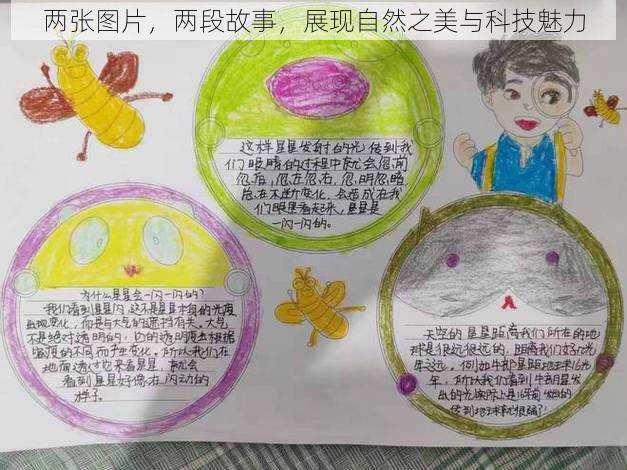 两张图片，两段故事，展现自然之美与科技魅力
这样星星发射的光传到我
们眼睛的过程中就会忽前
忽后，忽左忽右，忽明忽暗
总在不断变化，会造成在我
们眼里看起来，星星是
一闪一闪的。
为什么星星会一闪一闪的？
我们看到星星闪，这不是星星本身的光度
出现变化，而是与大气的遮挡有关。大气
不是绝对透明的，它的透明度会根据
密度的不同而产生变化。所以我们在
地面透过它来看星星，就会
看到星星好像在闪动的
样子。
天空的星星距离我们所在的地
球是很远很远的，距离我们好几光
年远。例如牛郎星距地球16光
年，所以我们看到牛郎星发
出的光实际上是16年前发出的
传到地球